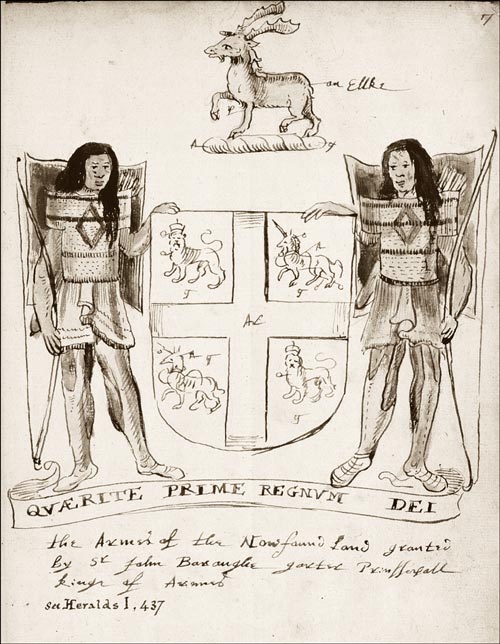 an Ellke
A
QVÆRITE PRIME REGNVM DEI
the Armes of the Newfound Land granted
by Sr John Baroughe garter Prinsserpall
kinge of Armes
see Heralds I, 437